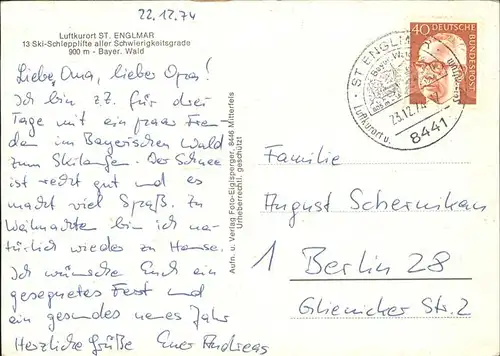 22.12.74
Luftkurort ST. ENGLMAR
13 Ski-Schlepplifte aller Schwierigkeitsgrade
900 m - Bayer. Wald
Liebe Oma, lieber Opa!
Ich bin z.Z. für drei
Tage mit ein paar Freun-
den im Bayerischen Wald
zum Skilaufen. Der Schnee
ist recht gut und es
macht viel Spaß. Zu
Weihnachten bin ich na-
türlich wieder zu Hause.
Ich wünsche Euch ein
gesegnetes Fest und
ein gesundes neues Jahr
Herzliche Grüße Euer Andreas
Aufn. u. Verlag Foto-Eiglsperger, 8446 Mitterfels
Urheberrechtl. geschützt
ST ENGLMAR
Bayr. Wald
Luftkurort u.
23.12.74
8441
40 DEUTSCHE
BUNDESPOST
Familie
August Schernikau
1 Berlin 28
Glienicker Str. 2